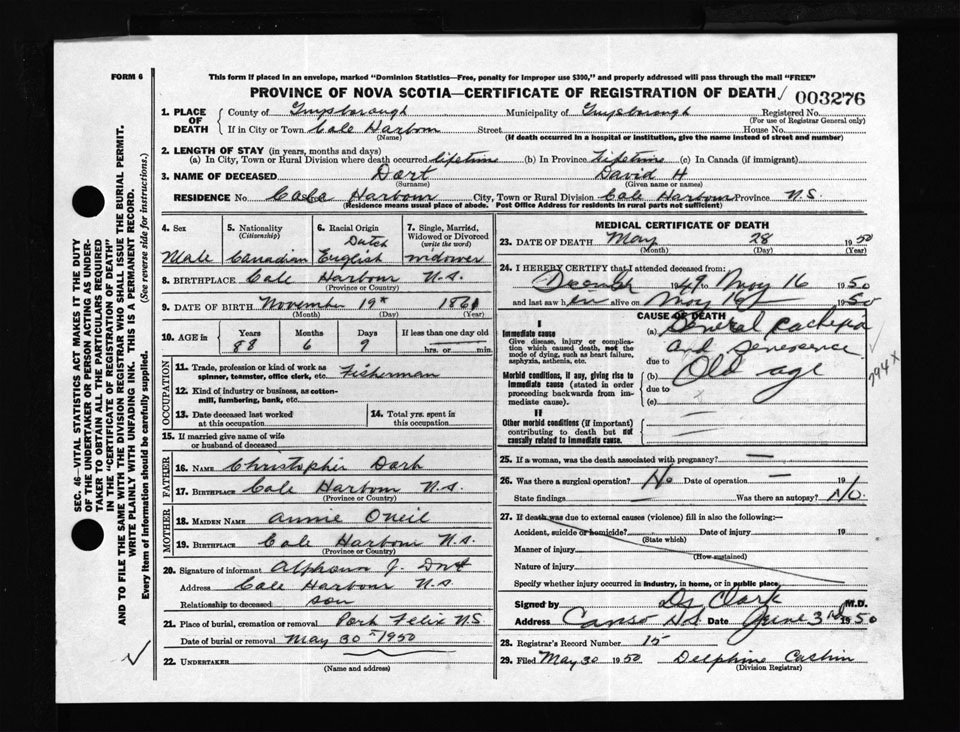 FORM 6
This form if placed in an envelope, marked "Dominion Statistics—Free, penalty for improper use $300," and properly addressed will pass through the mail "FREE"
PROVINCE OF NOVA SCOTIA—CERTIFICATE OF REGISTRATION OF DEATH 003276
1. PLACE OF DEATH County of Guysborough Municipality of Guysborough Registered No.
(For use of Registrar General only)
If in City or Town Cole Harbour Street House No.
(Name) (If death occurred in a hospital or institution, give the name instead of street and number)
2. LENGTH OF STAY (in years, months and days)
(a) In City, Town or Rural Division where death occurred lifetime (b) In Province Lifetime (c) In Canada (if immigrant)
3. NAME OF DECEASED Dort David H
(Surname) (Given name or names)
RESIDENCE No. Cole Harbour City, Town or Rural Division Cole Harbour Province N.S.
(Residence means usual place of abode. Post Office Address for residents in rural parts not sufficient)
4. Sex Male
5. Nationality (Citizenship) Canadian
6. Racial Origin Dutch English
7. Single, Married, Widowed or Divorced (write the word) widower
8. BIRTHPLACE Cole Harbour N.S.
(Province or Country)
9. DATE OF BIRTH November 19th 1861
(Month) (Day) (Year)
10. AGE in Years 88 Months 6 Days 9 If less than one day old hrs. or min.
OCCUPATION
11. Trade, profession or kind of work as spinner, teamster, office clerk, etc. Fisherman
12. Kind of industry or business, as cotton-mill, lumbering, bank, etc.
13. Date deceased last worked at this occupation
14. Total yrs. spent in this occupation
15. If married give name of wife or husband of deceased
FATHER
16. NAME Christopher Dort
17. BIRTHPLACE Cole Harbour N.S.
(Province or Country)
MOTHER
18. MAIDEN NAME Annie Oneil
19. BIRTHPLACE Cole Harbour N.S.
(Province or Country)
20. Signature of informant Alphonse J. Dort
Address Cole Harbour N.S.
Relationship to deceased son
21. Place of burial, cremation or removal Port Felix N.S.
Date of burial or removal May 30th 1950
22. UNDERTAKER
(Name and address)
MEDICAL CERTIFICATE OF DEATH
23. DATE OF DEATH May 28 1950
(Month) (Day) (Year)
24. I HEREBY CERTIFY that I attended deceased from:
December 1949 to May 16 1950
and last saw h im alive on May 16 1950
CAUSE OF DEATH
I
Immediate cause
Give disease, injury or complication which caused death, not the mode of dying, such as heart failure, asphyxia, asthenia, etc.
(a) General Cachexia and Senescence
due to
Morbid conditions, if any, giving rise to immediate cause (stated in order proceeding backwards from immediate cause).
(b) Old age
due to
(c)
794X
II
Other morbid conditions (if important) contributing to death but not causally related to immediate cause.
25. If a woman, was the death associated with pregnancy? —
26. Was there a surgical operation? No Date of operation — 19
State findings — Was there an autopsy? No.
27. If death was due to external causes (violence) fill in also the following:—
Accident, suicide or homicide? Date of injury 19
(State which)
Manner of injury
(How sustained)
Nature of injury
Specify whether injury occurred in industry, in home, or in public place
Signed by Dr Clark M.D.
Address Canso N.S. Date June 3rd 1950
28. Registrar's Record Number 15
29. Filed May 30 1950 Delphine Cashin
(Division Registrar)
SEC. 46—VITAL STATISTICS ACT MAKES IT THE DUTY
OF THE UNDERTAKER OR PERSON ACTING AS UNDER-
TAKER TO OBTAIN ALL THE PARTICULARS REQUIRED
IN THE "CERTIFICATE OF REGISTRATION OF DEATH"
AND TO FILE THE SAME WITH THE DIVISION REGISTRAR WHO SHALL ISSUE THE BURIAL PERMIT.
WRITE PLAINLY WITH UNFADING INK. THIS IS A PERMANENT RECORD.
Every item of information should be carefully supplied. (See reverse side for instructions.)